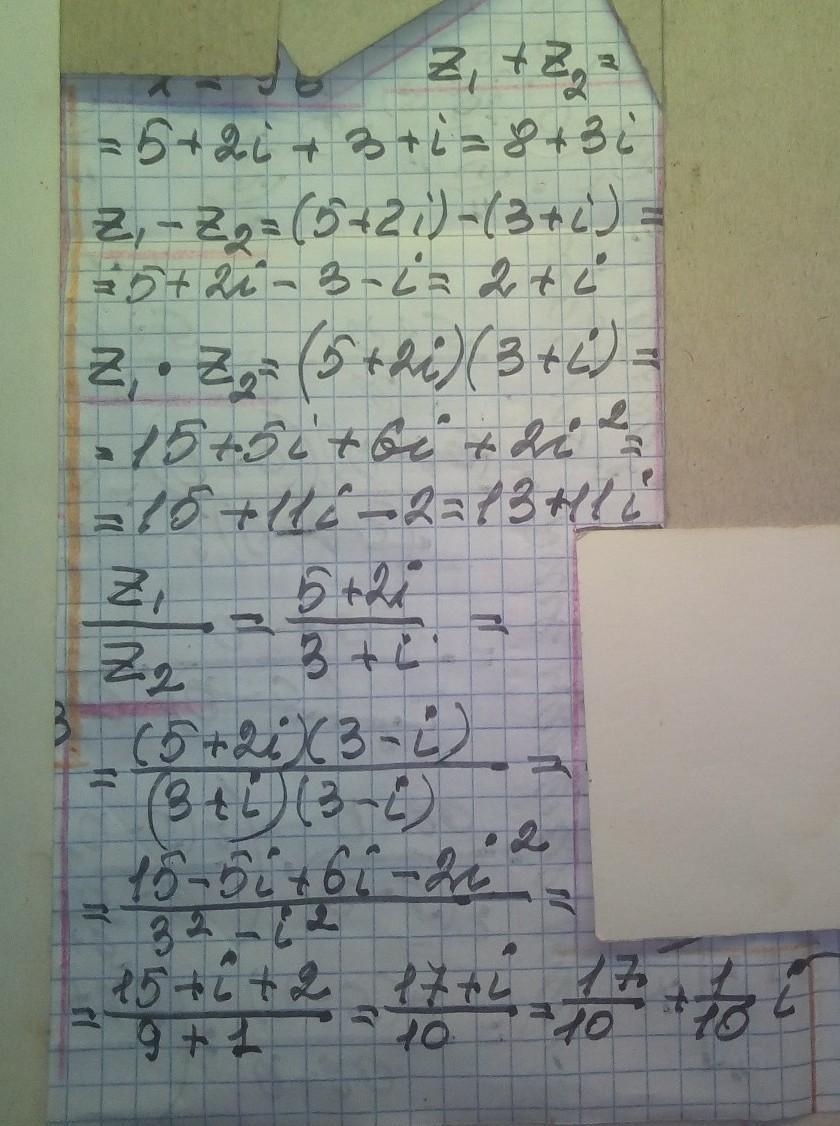 z₁ + z₂ =
= 5 + 2i + 3 + i = 8 + 3i
z₁ - z₂ = (5 + 2i) - (3 + i) =
= 5 + 2i - 3 - i = 2 + i
z₁ · z₂ = (5 + 2i)(3 + i) =
= 15 + 5i + 6i + 2i² =
= 15 + 11i - 2 = 13 + 11i
z₁/z₂ = (5 + 2i)/(3 + i) =
= (5 + 2i)(3 - i)/(3 + i)(3 - i) =
= (15 - 5i + 6i - 2i²)/(3² - i²) =
= (15 + i + 2)/(9 + 1) = (17 + i)/10 = 17/10 + 1/10 i